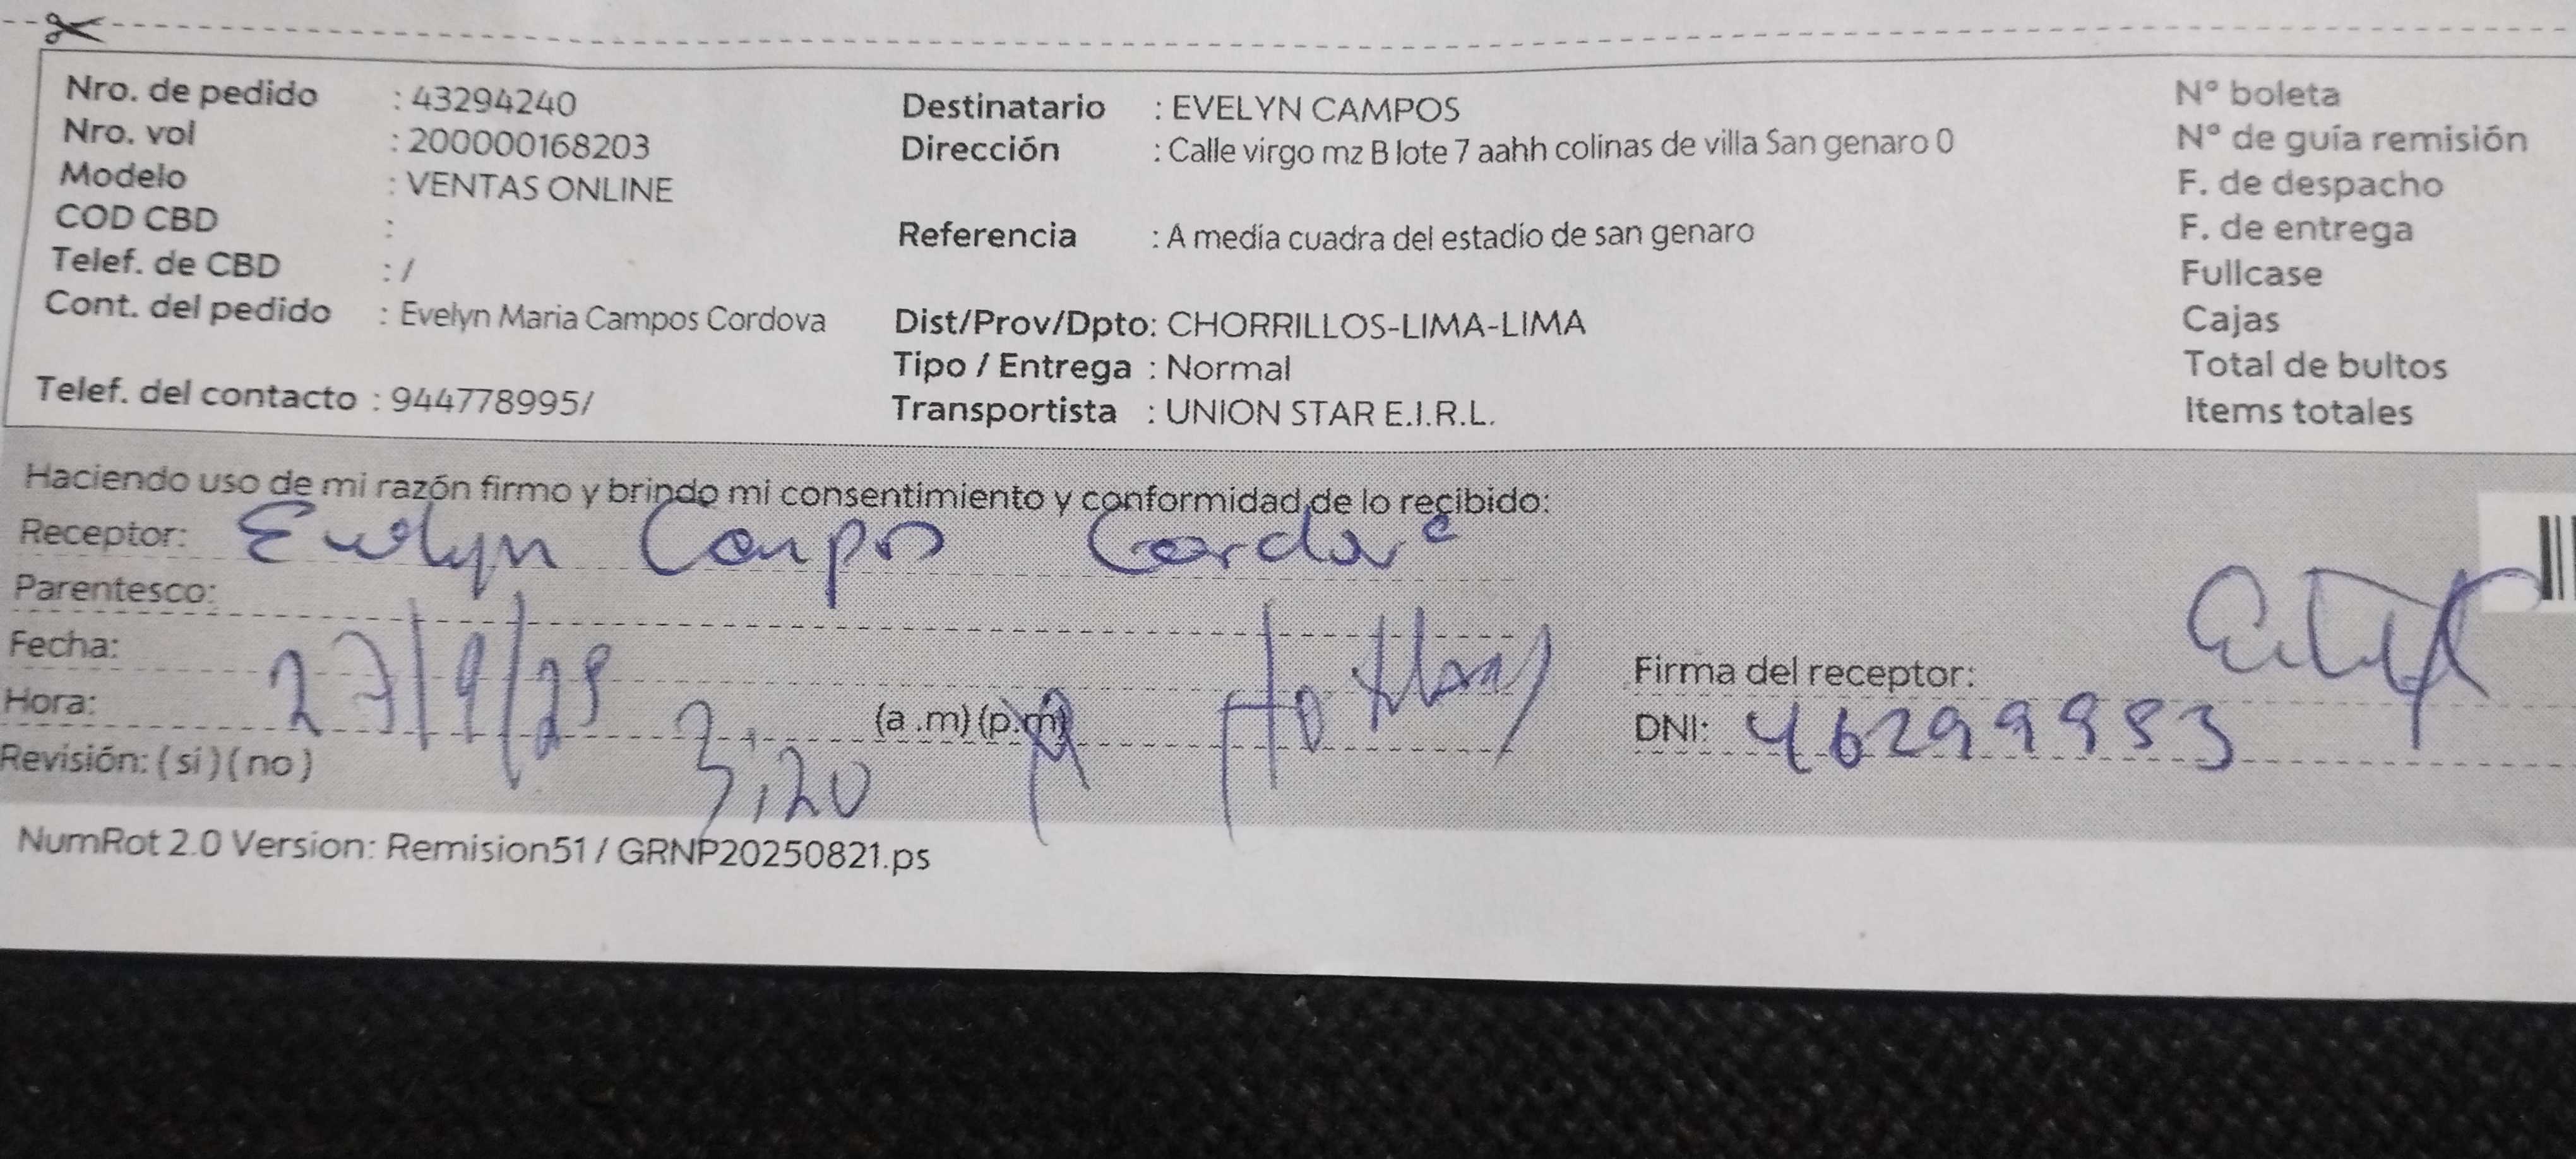 Nro. de pedido : 43294240
Nro. vol : 200000168203
Modelo : VENTAS ONLINE
COD CBD :
Telef. de CBD : /
Cont. del pedido : Evelyn Maria Campos Cordova
Telef. del contacto : 944778995/
Destinatario : EVELYN CAMPOS
Dirección : Calle virgo mz B lote 7 aahh colinas de villa San genaro 0
Referencia : A media cuadra del estadio de san genaro
Dist/Prov/Dpto: CHORRILLOS-LIMA-LIMA
Tipo / Entrega : Normal
Transportista : UNION STAR E.I.R.L.
N° boleta
N° de guía remisión
F. de despacho
F. de entrega
Fullcase
Cajas
Total de bultos
Items totales
Haciendo uso de mi razón firmo y brindo mi consentimiento y conformidad de lo recibido:
Receptor: Evelyn Campos Cordova
Parentesco:
Fecha: 27/9/25
Hora: 3:20 (a .m) (p.m)
Revisión: ( si ) ( no )
Firma del receptor:
DNI: 46299953
NumRot 2.0 Version: Remision51 / GRNP20250821.ps